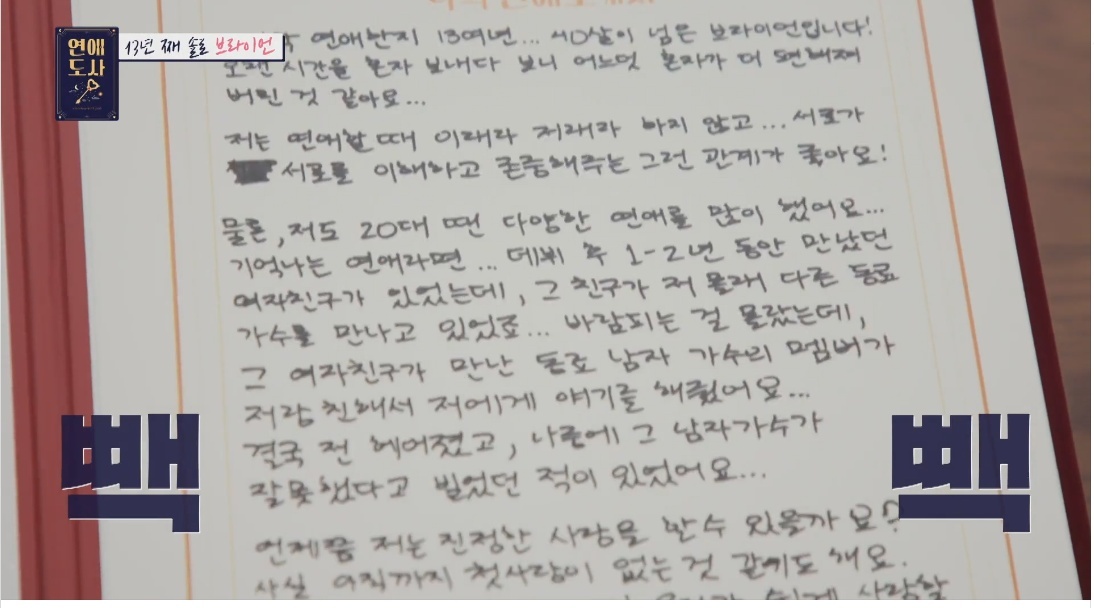 연애
도사
13년 째 솔로 브라이언
연애한지 13여년... 40살이 넘은 브라이언입니다!
오랜 시간을 혼자 보내다 보니 어느덧 혼자가 더 편해져
버린 것 같아요...
저는 연애할 때 이래라 저래라 하지 않고... 서로가
서로를 이해하고 존중해주는 그런 관계가 좋아요!
물론, 저도 20대 땐 다양한 연애를 많이 했어요...
기억나는 연애라면... 데뷔 후 1-2년 동안 만났던
여자친구가 있었는데, 그 친구가 저 몰래 다른 동료
가수를 만나고 있었죠... 바람피는 걸 몰랐는데,
그 여자친구가 만난 동료 남자 가수의 멤버가
저랑 친해서 저에게 얘기를 해줬어요...
결국 전 헤어졌고, 나중에 그 남자가수가
잘못했다고 빌었던 적이 있었어요...
빽 빽
언제쯤 저는 진정한 사랑을 할 수 있을까요?
사실 아직까지 첫사랑이 없는 것 같기도 해요.
쉽게 사랑할